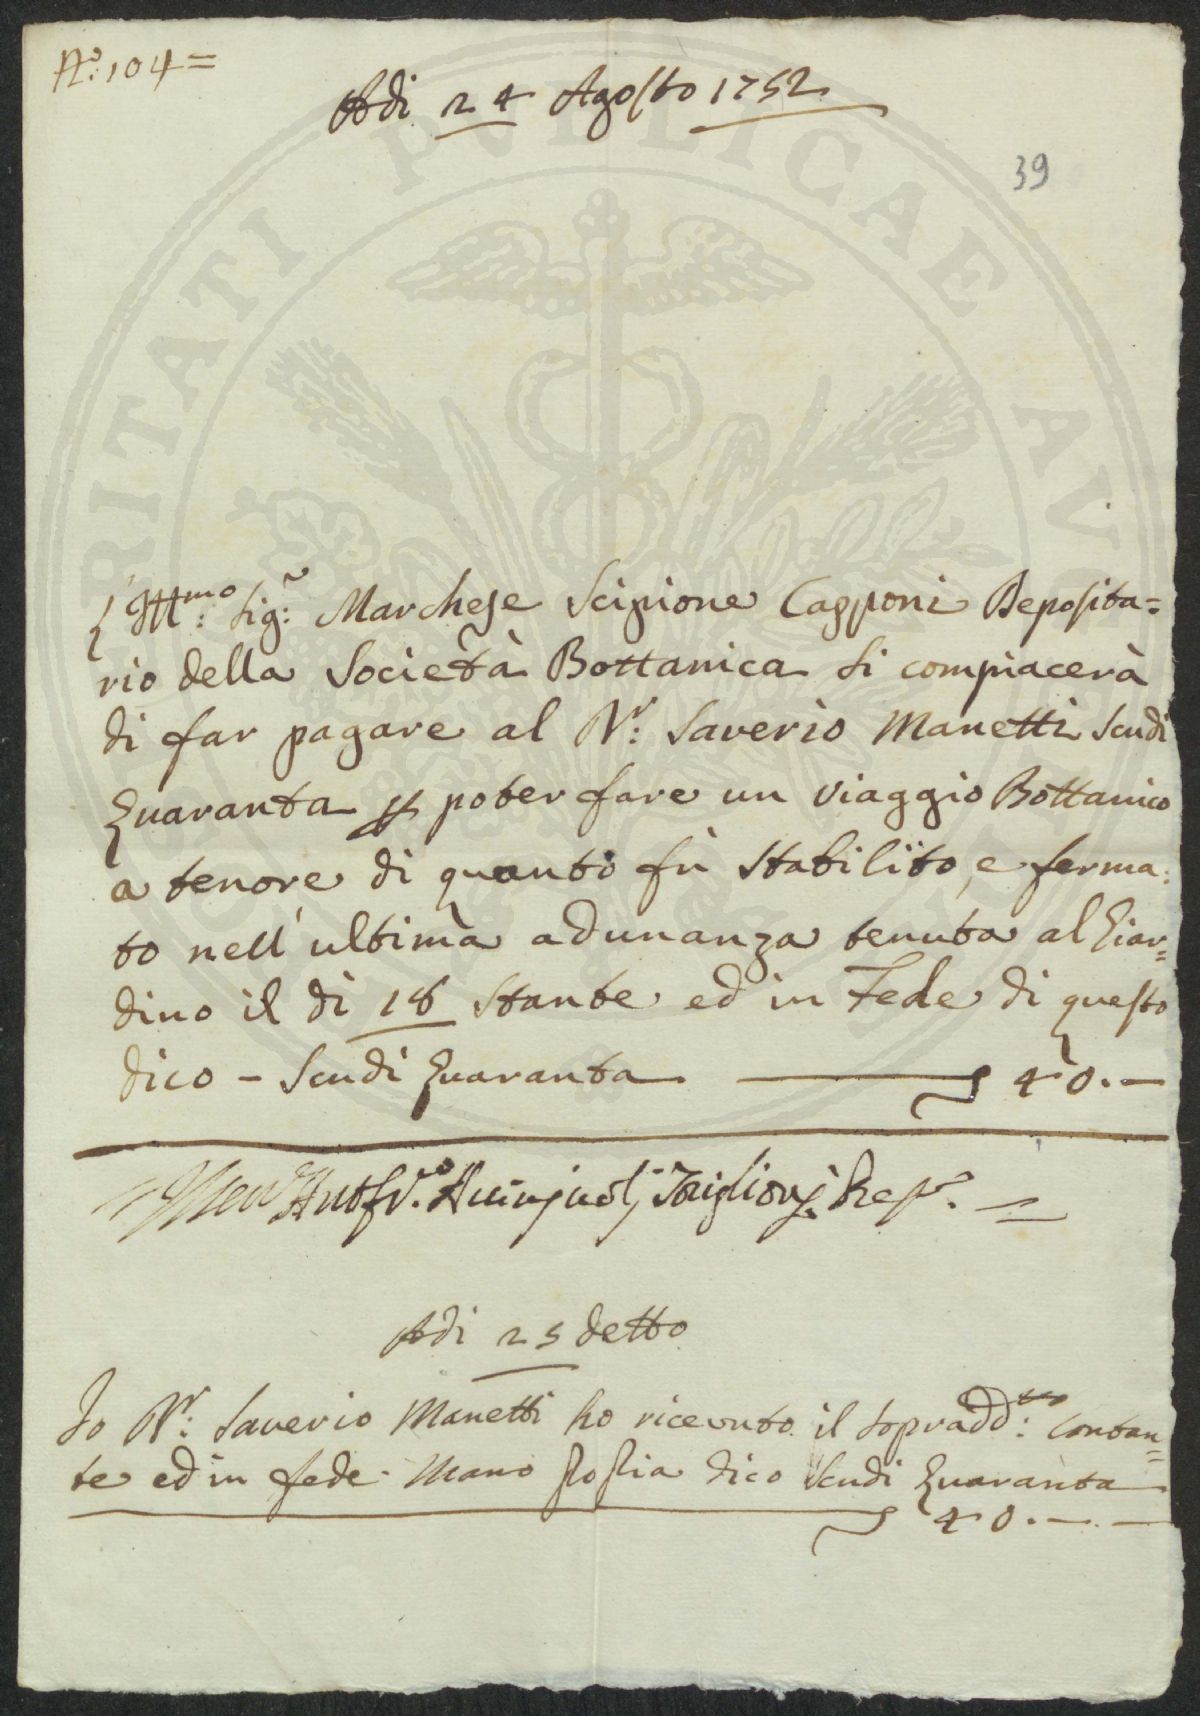 N.° 104=
Adi 24 Agosto 1752
39
L'Ill.mo Sig.r Marchese Scipione Capponi Deposita=
rio della Società Bottanica si compiacerà
di far pagare al D.r Saverio Manetti Scudi
Quaranta p poter fare un Viaggio Bottanico
a tenore di quanto fù stabilito, e ferma:
to nell'ultima adunanza tenuta al Giar=
dino il di 18 stante ed in Fede di questo
dico – Scudi Quaranta 40.–
Adi 25 detto
Io D.r Saverio Manetti ho ricevuto il sopradd.tto contan=
te ed in fede Mano propria dico Scudi Quaranta
40.–.–
PVBLICAE